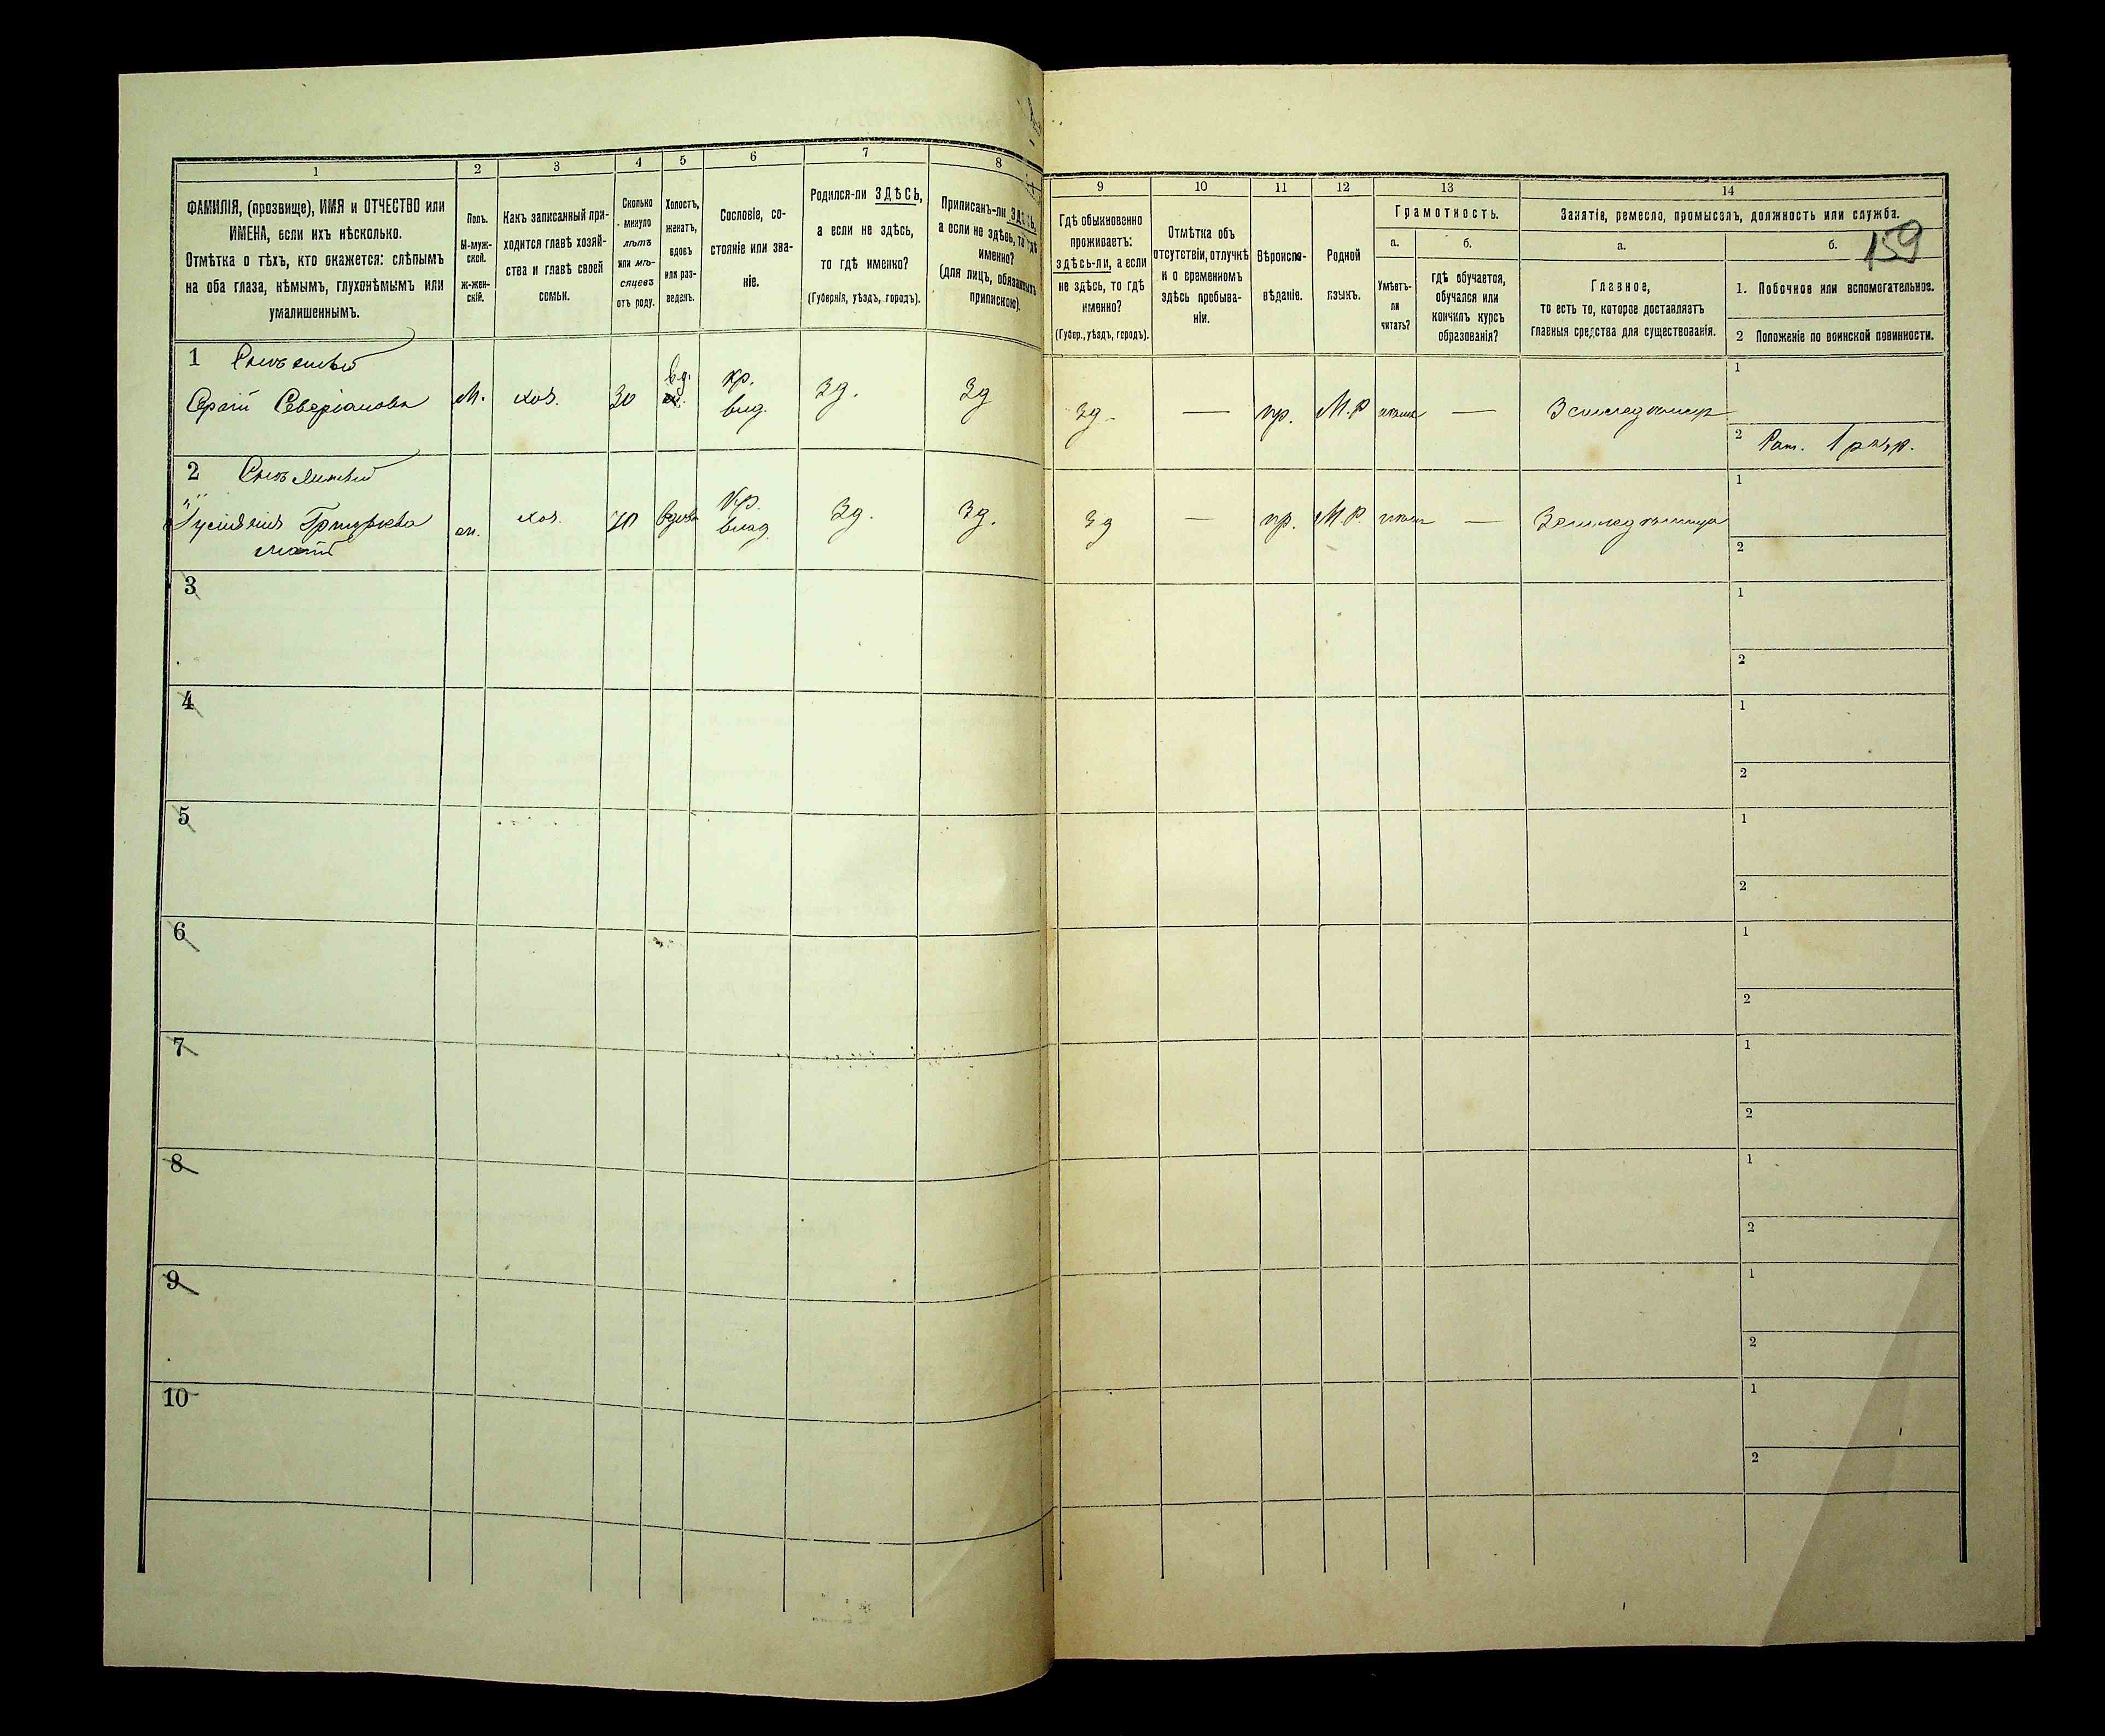 1
2
3
4
5
6
7
8
ФАМИЛІЯ, (прозвище), ИМЯ и ОТЧЕСТВО или
ИМЕНА, если ихъ нѣсколько.
Отмѣтка о тѣхъ, кто окажется: слѣпымъ
на оба глаза, нѣмымъ, глухонѣмымъ или
умалишеннымъ.
Полъ.
М-муж-
ской.
ж-жен-
скій.
Какъ записанный при-
ходится главѣ хозяй-
ства и главѣ своей
семьи.
Сколько
минуло
лѣтъ
или мѣ-
сяцевъ
отъ роду.
Холостъ,
женатъ,
вдовъ
или раз-
веденъ.
Сословіе, со-
стояніе или зва-
ніе.
Родился-ли ЗДѢСЬ,
а если не здѣсь,
то гдѣ именно?
(Губернія, уѣздъ, городъ).
Приписанъ-ли ЗДѢСЬ,
а если не здѣсь, то гдѣ
именно?
(для лицъ, обязанныхъ
припискою).
9
10
11
12
13
14
Гдѣ обыкновенно
проживаетъ:
здѣсь-ли, а если
не здѣсь, то гдѣ
именно?
(Губер., уѣздъ, городъ).
Отмѣтка объ
отсутствіи, отлучкѣ
и о временномъ
здѣсь пребыва-
ніи.
Вѣроиспо-
вѣданіе.
Родной
языкъ.
Грамотность.
а.
б.
Умѣетъ-
ли
читать?
гдѣ обучается,
обучался или
кончилъ курсъ
образованія?
Занятіе, ремесло, промыселъ, должность или служба.
159
а.
б.
Главное,
то есть то, которое доставляетъ
главныя средства для существованія.
1. Побочное или вспомогательное.
2 Положеніе по воинской повинности.
1
Сергій Северіановъ
М.
хоз.
30
вд.
кр.
влад.
зд.
зд
зд.
—
пр.
М.р
—
1
2 Рат. 1 разр.
2
мать
хоз.
70
вдова
кр.
влад.
зд.
зд.
зд
—
пр.
М.р.
—
1
2
3
1
2
4
1
2
5
1
2
6
1
2
7
1
2
8
1
2
9
1
2
10
1
2